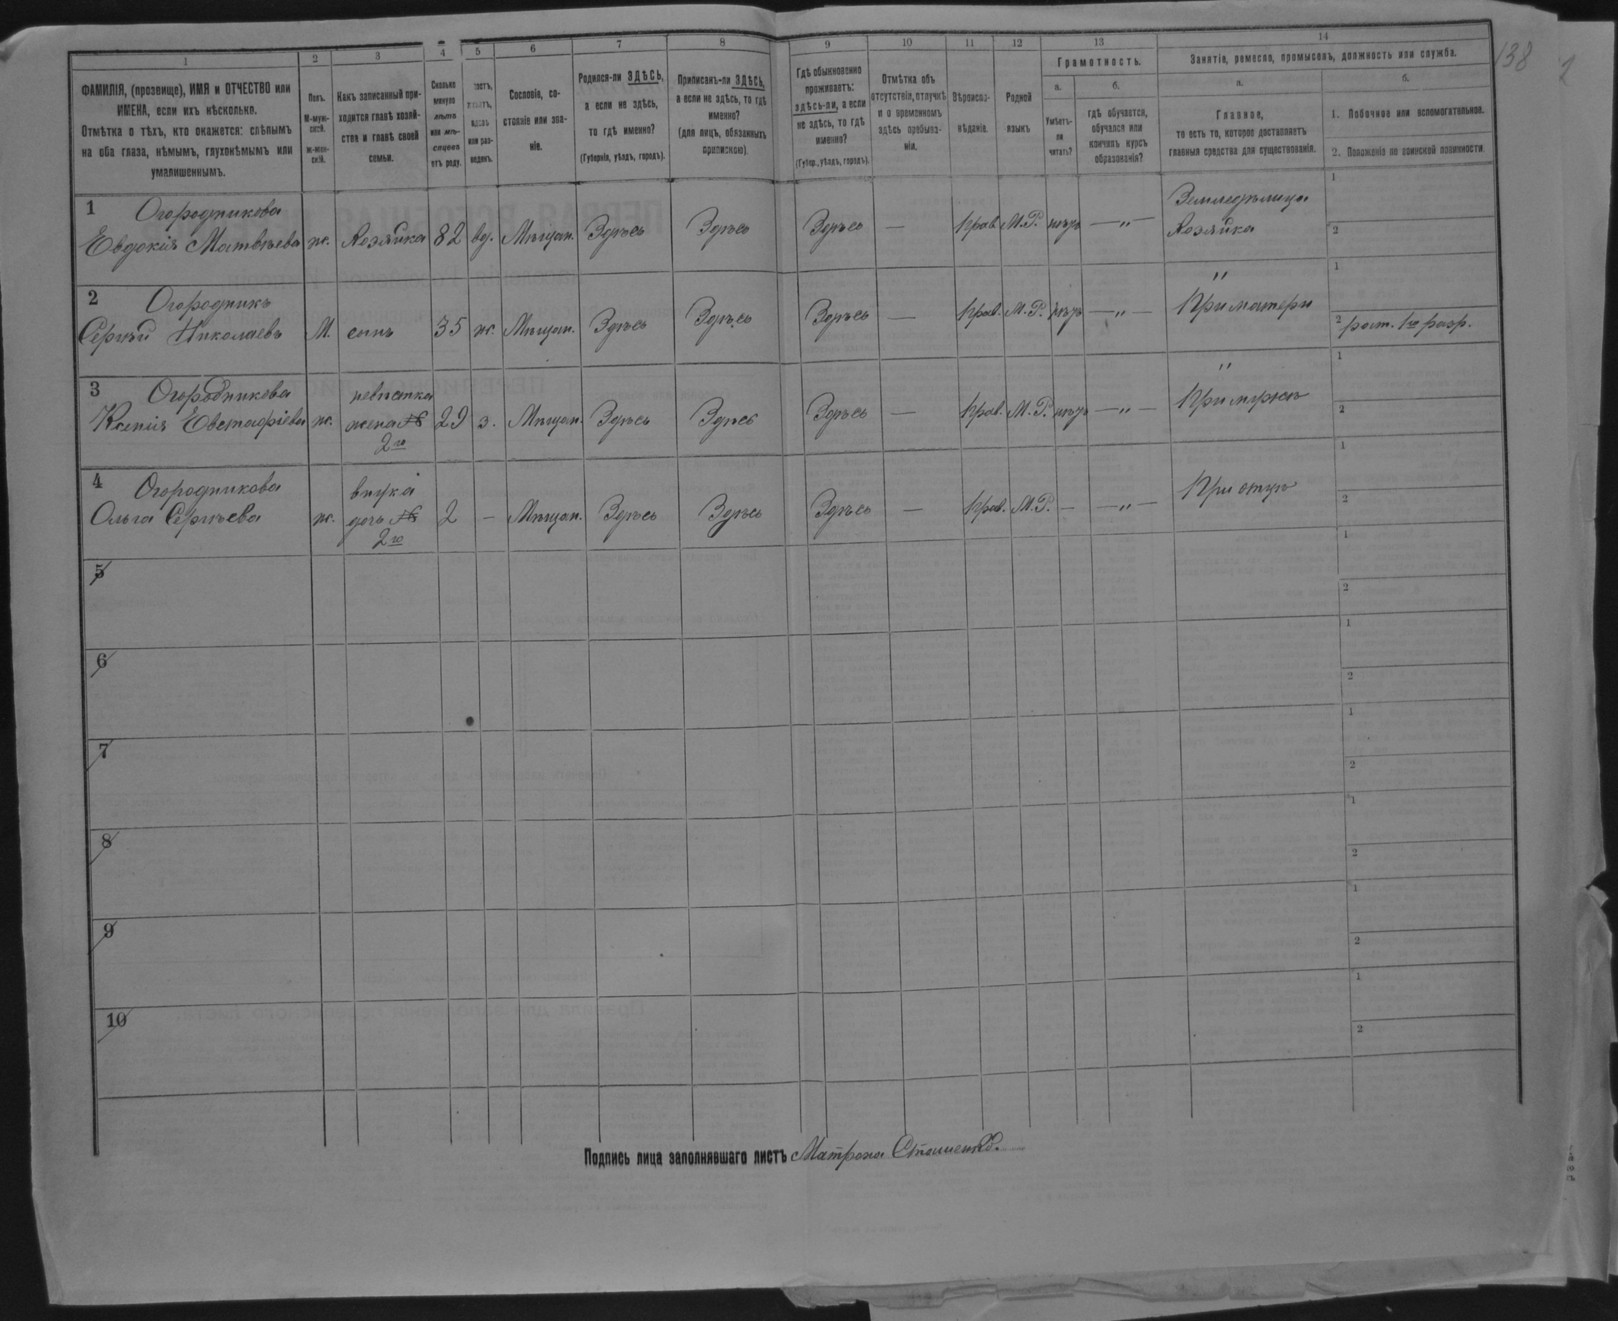 138
1 2 3 4 5 6 7 8 9 10 11 12 13 14
ФАМИЛІЯ, (прозвище), ИМЯ и ОТЧЕСТВО или
ИМЕНА, если ихъ нѣсколько.
Отмѣтка о тѣхъ, кто окажется: слѣпымъ
на оба глаза, нѣмымъ, глухонѣмымъ или
умалишеннымъ.
Полъ.
М-муж-
ской.
ж-жен-
скій.
Какъ записанный при-
ходится главѣ хозяй-
ства и главѣ своей
семьи.
Сколько
минуло
лѣтъ
или мѣ-
сяцевъ
отъ роду.
или раз-
веденъ.
Сословіе, со-
стояніе или зва-
ніе.
Родился-ли ЗДѢСЬ,
а если не здѣсь,
то гдѣ именно?
(Губернія, уѣздъ, городъ).
Приписанъ-ли ЗДѢСЬ,
а если не здѣсь, то гдѣ
именно?
(для лицъ, обязанныхъ
припискою).
Гдѣ обыкновенно
проживаетъ:
здѣсь-ли, а если
не здѣсь, то гдѣ
именно?
(Губер., уѣздъ, городъ).
Отмѣтка объ
отсутствіи, отлучкѣ
и о временномъ
здѣсь пребыва-
ніи.
Вѣроиспо-
вѣданіе.
Родной
языкъ.
Грамотность.
а.
Умѣетъ-
ли
читать?
б.
гдѣ обучается,
обучался или
кончилъ курсъ
образованія?
Занятія, ремесло, промыселъ, должность или служба.
а.
Главная,
то есть то, которое доставляетъ
главныя средства для существованія.
б.
1. Побочное или вспомогательное.
2. Положеніе по воинской повинности
1 Огородникова
Евдокія Матвѣева ж. Хозяйка 82 вд. Мѣщан. Здѣсь Здѣсь Здѣсь — Прав. М.Р. нѣтъ — „ — Земледѣлица Хозяйка
1
2
2 Огородникъ
Сергѣй Николаевъ М. сынъ 35 ж. Мѣщан. Здѣсь Здѣсь Здѣсь — Прав. М.Р. нѣтъ — „ — „ При матери
1
2 ратн. 1го разр.
3 Огородникова
Ксенія Евстафіева ж. невѣстка жена № 2го 29 з. Мѣщан. Здѣсь Здѣсь Здѣсь — Прав. М.Р. нѣтъ — „ — „ При мужѣ
1
2
4 Огородникова
Ольга Сергѣева ж. внука дочь № 2го 2 — Мѣщан. Здѣсь Здѣсь Здѣсь — Прав. М.Р. — — „ — При отцѣ
1
2
5
1
2
6
1
2
7
1
2
8
1
2
9
1
2
10
1
2
Подпись лица заполнявшаго листъ Матрона